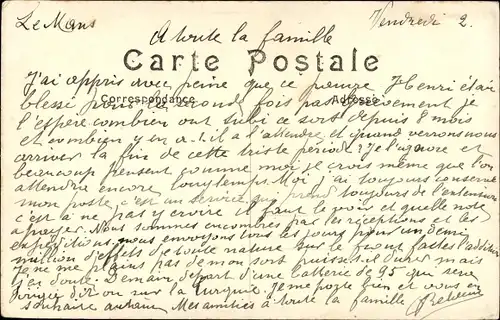 Le Mans Vendredi 2.
A toute la famille
Carte Postale
J'ai appris avec peine que ce pauvre Henri était
Correspondance Adresse
blessé pour la seconde fois pas grièvement je
l'espère combien ont subi ce sort depuis 8 mois
et combien y en a-t-il à l'attendre et quand verrons nous
arriver la fin de cette triste période? Je l'ignore et
beaucoup pensent comme moi je crois même que l'on
attendra encore longtemps. Moi j'ai toujours conservé
mon poste, c'est un service qui prend toujours de l'extension
c'est à ne pas y croire il faut le voir et quelle note
à payer. Nous sommes encombrés par les réceptions et les
expéditions, nous envoyons tous les jours pour un demi
million d'effets de toute nature sur le front faites l'addition
Je ne me plains pas de mon sort puisse-t-il durer mais
j'en doute. Demain départ d'une batterie de 95 qui sera
dirigée dit on sur la Turquie. Je me porte bien et vous en
souhaite autant. Mes amitiés à toute la famille